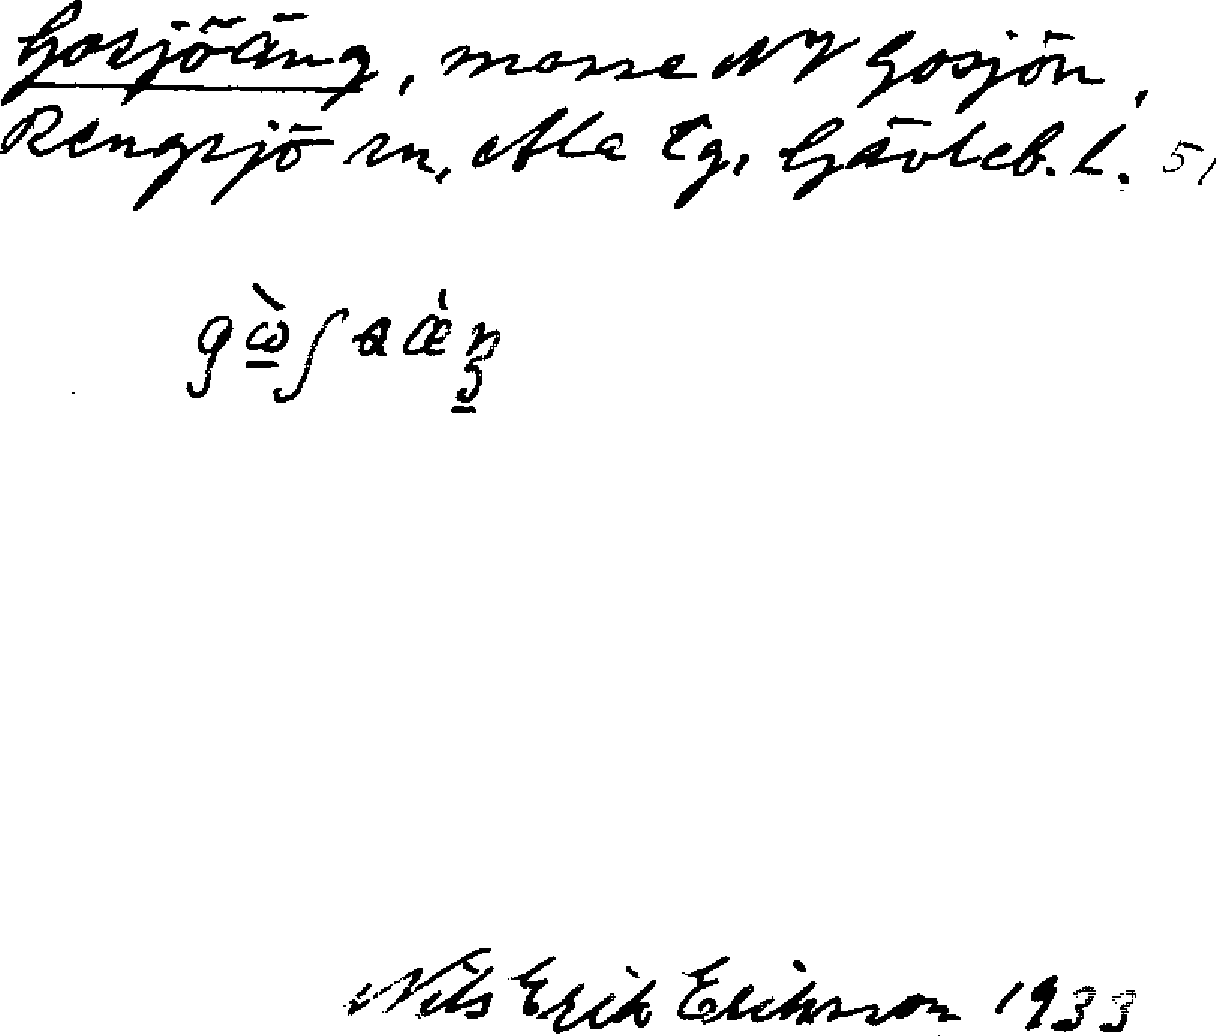 Gosjöäng, mosse NV Gosjön,
Rengsjö sn, Ala tg, Gävleb. l. 51
Nils Erik Eriksson 1933